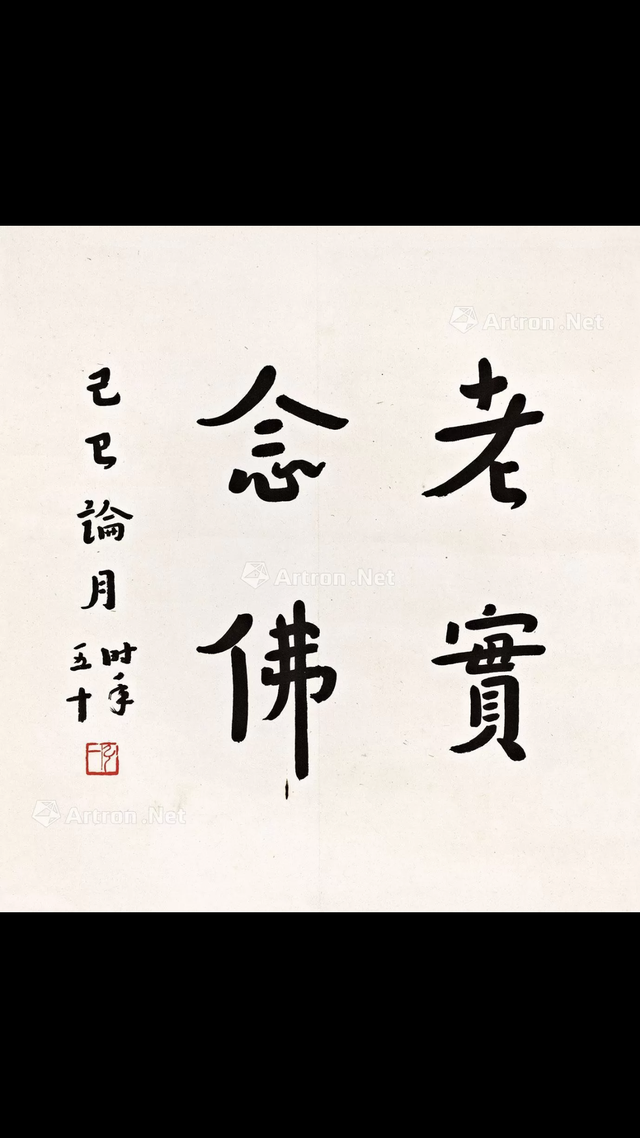 老實
念佛
己巳論月
时年
五十
Artron.Net
Artron.Net
Artron.Net